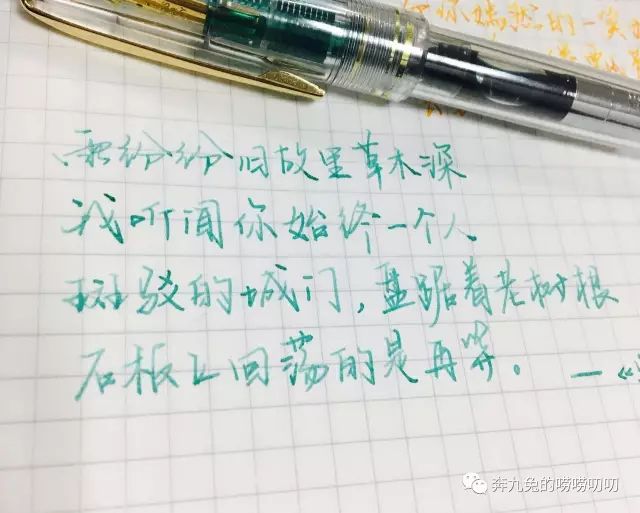 你嫣然的一笑
雨纷纷旧故里草木深
我听闻你始终一个人
斑驳的城门，盘踞着老树根
石板上回荡的是再等。 —《
奔九兔的唠唠叨叨